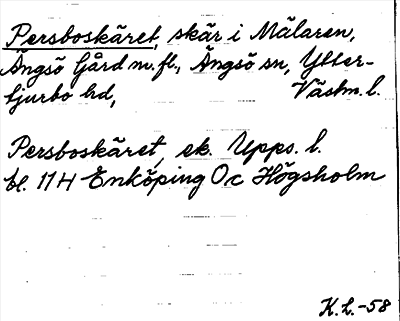 Persboskäret, skär i Mälaren,
Ängsö Gård m.fl., Ängsö sn, Ytter-
tjurbo hd, Västm. l.
Persboskäret, ek. Upps. l.
bl. 11H Enköping Oc Högsholm
K.L.-58